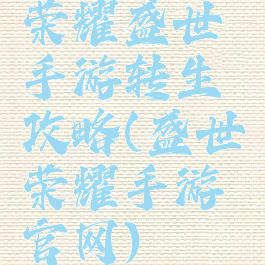 荣耀盛世
手游转生
攻略(盛世
荣耀手游
官网)